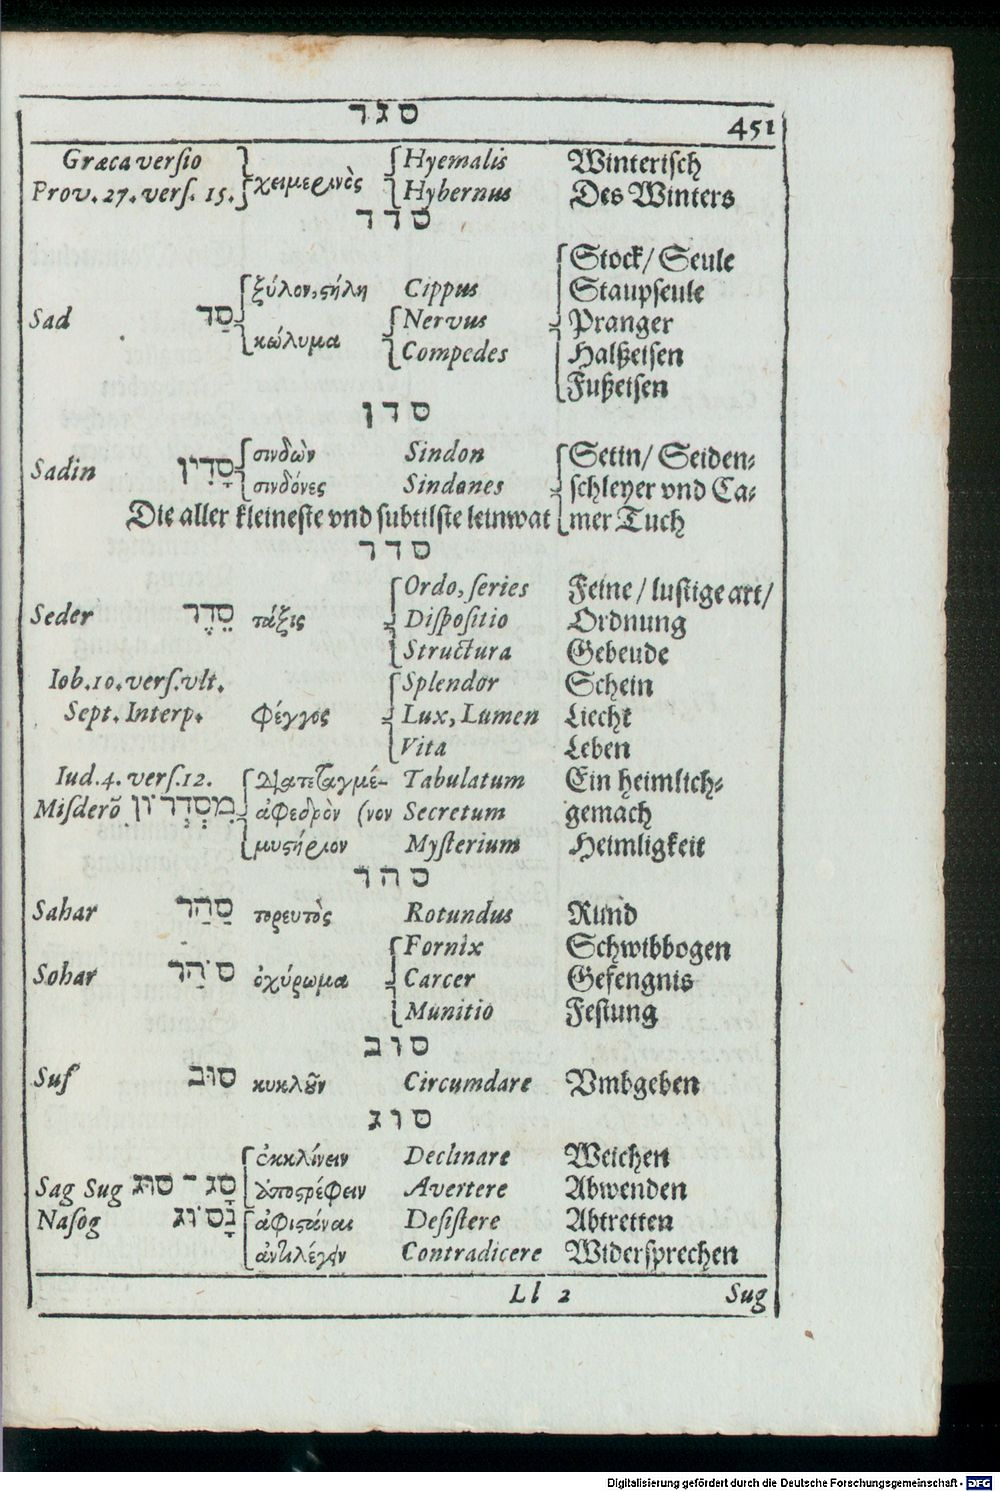 סגר
451
Græca versio χειμερινὸς Hyemalis Winterisch
Prov. 27. vers. 15. Hybernus Des Winters
סדד
Stock/ Seule
ξύλον, ϛήλη Cippus Staupseule
Sad סַד Nervus Pranger
κώλυμα Compedes Halßeisen
Fußeisen
סדן
σινδὼν Sindon Setin/ Seiden-
Sadin סָדִין σινδόνες Sindones schleyer vnd Ca-
Die aller kleineste vnd subtilste leinwat mer Tuch
סדר
Ordo, series Feine / lustige art/
Seder סֵדֶר τάξις Dispositio Ordnung
Structura Gebeude
Iob. 10. vers. vlt. Splendor Schein
Sept. Interp. φέγγος Lux, Lumen Liecht
Vita Leben
Iud. 4. vers. 12. διατεταγμέ- Tabulatum Ein heimlich-
Misderõ מִסְדְּרוֹן ἀφεδρὸν (νον Secretum gemach
μυϛήριον Mysterium Heimligkeit
סהר
Sahar סַהַר τορευτὸς Rotundus Rund
Fornix Schwibbogen
Sohar סֹהַר ὀχύρωμα Carcer Gefengnis
Munitio Festung
סוב
Suf סוּב κυκλοῦν Circumdare Vmbgeben
סוג
ἐκκλίνειν Declinare Weichen
Sag Sug סָג - סוּג ἀποϛρέφειν Avertere Abwenden
Nasog נָסוֹג ἀφιϛάναι Desistere Abtretten
ἀντιλέγειν Contradicere Widersprechen
Ll 2 Sug
Digitalisierung gefördert durch die Deutsche Forschungsgemeinschaft - DFG